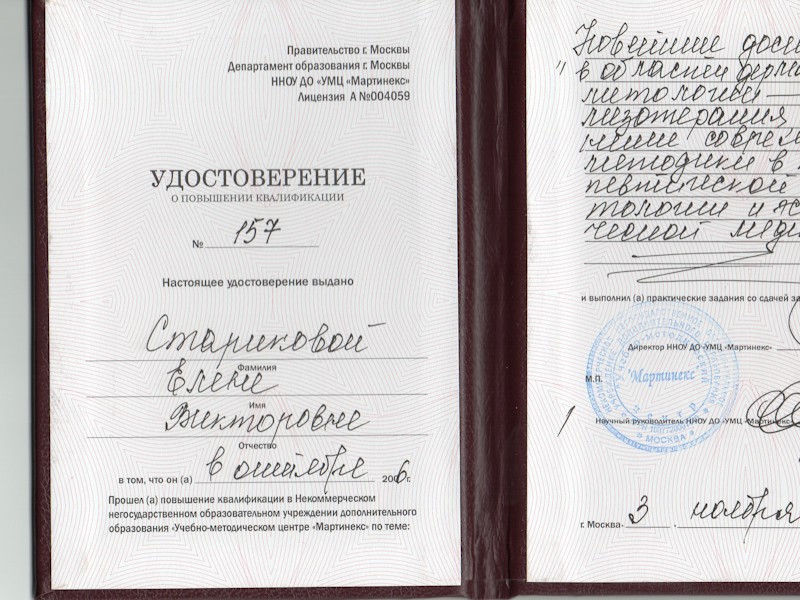 Правительство г. Москвы
Департамент образования г. Москвы
ННОУ ДО «УМЦ «Мартинекс»
Лицензия А №004059
УДОСТОВЕРЕНИЕ
О ПОВЫШЕНИИ КВАЛИФИКАЦИИ
№ 157
Настоящее удостоверение выдано
Стариковой
Фамилия
Елене
Имя
Викторовне
Отчество
в том, что он (а) в октябре 2006г.
Прошел (а) повышение квалификации в Некоммерческом
негосударственном образовательном учреждении дополнительного
образования «Учебно-методическом центре «Мартинекс» по теме:
Новейшие дос
" в области
мезотерапия
методики в
певтической
тологии и эс
ческой мед
и выполнил (а) практические задания со сдачей за
Директор ННОУ ДО «УМЦ «Мартинекс»
М.П.
"Мартинекс"
центр
МОСКВА
Научный руководитель ННОУ ДО «УМЦ «Мартинекс»
г. Москва 3 ноября